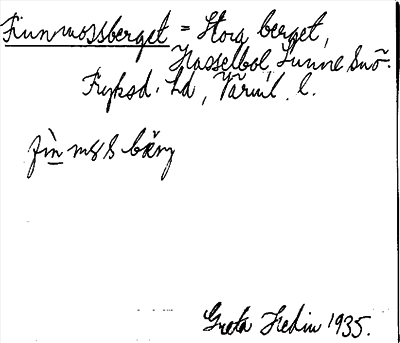 Finnmossberget = Storberget,
Hasselbol, Sunne Snö.
Fryksd. hd, Värml. l.
Greta Hedin 1935.